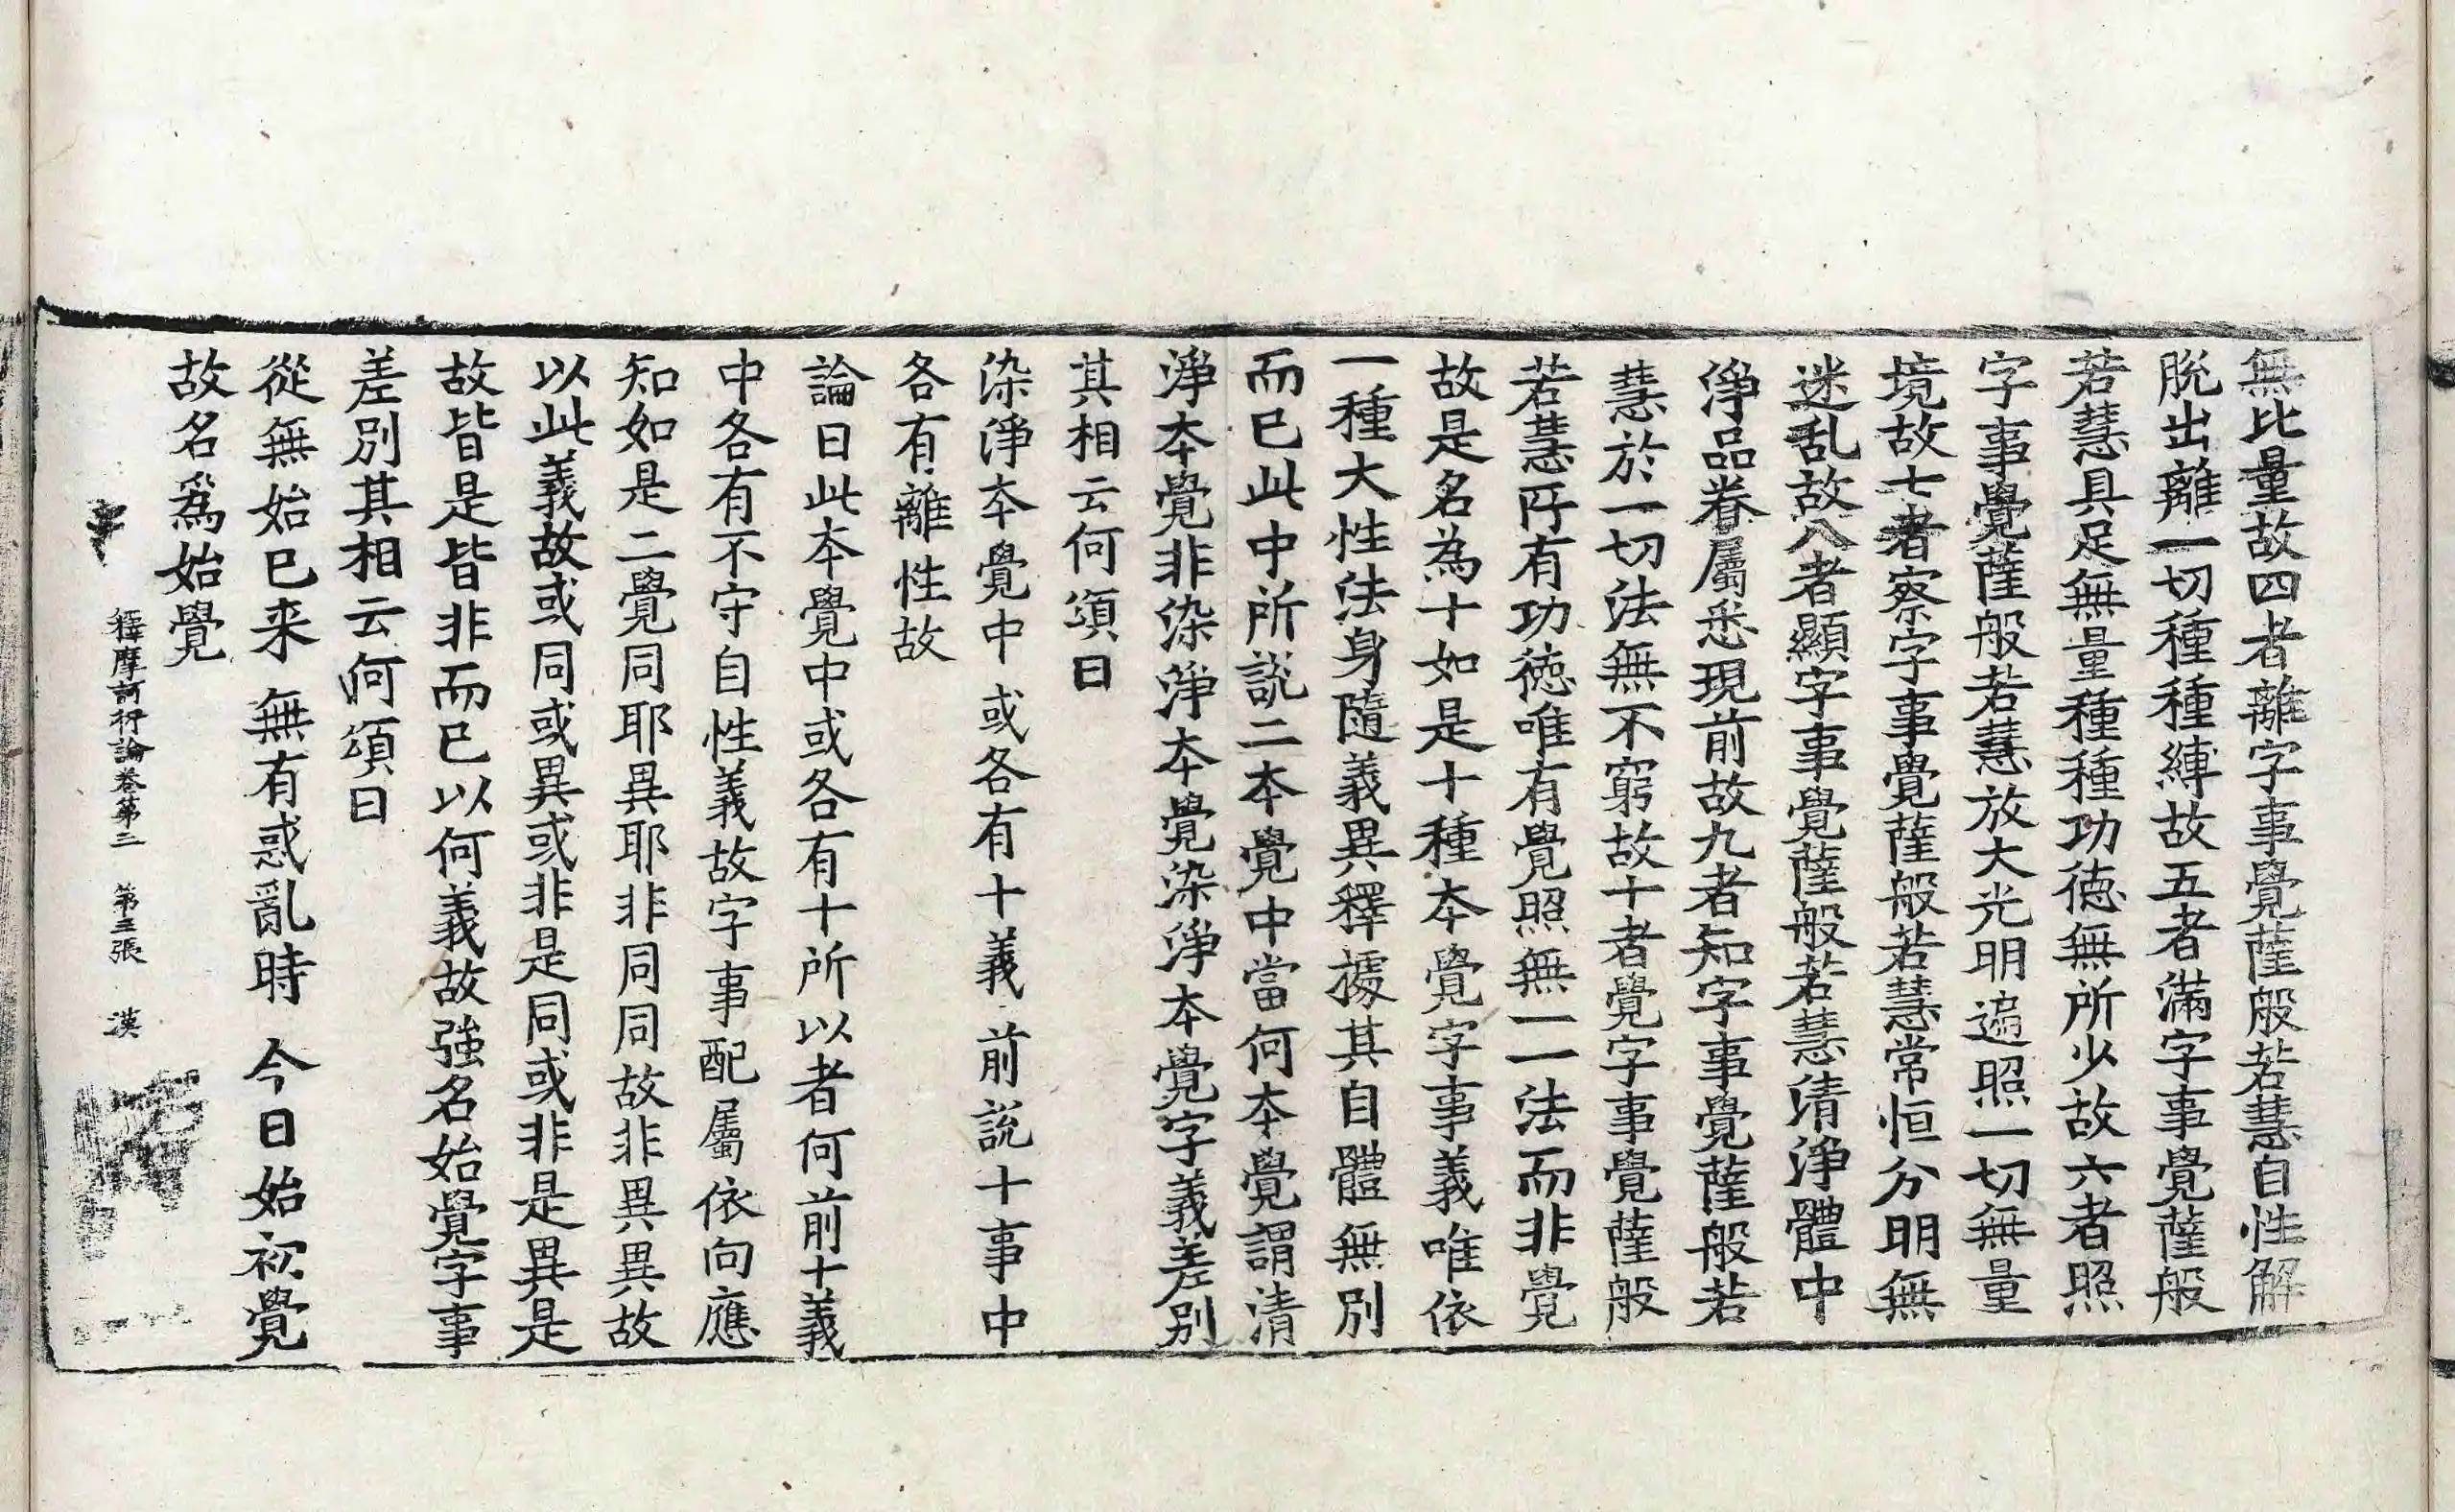 無比量故四者離字事覺薩般若慧自性解
脫出離一切種種縛故五者滿字事覺薩般
若慧具足無量種種功德無所少故六者照
字事覺薩般若慧放大光明遍照一切無量
境故七者察字事覺薩般若慧常恒分明無
迷乱故八者顯字事覺薩般若慧清淨體中
淨品眷屬悉現前故九者知字事覺薩般若
慧於一切法無不窮故十者覺字事覺薩般
若慧所有功德唯有覺照無一一法而非覺
故是名為十如是十種本覺字事義唯依
一種大性法身隨義異釋據其自體無別
而已此中所說二本覺中當何本覺謂清
淨本覺非染淨本覺染淨本覺字義差別
其相云何頌曰
染淨本覺中 或各有十義 前說十事中
各有離性故
論曰此本覺中或各有十所以者何前十義
中各有不守自性義故字事配屬依向應
知如是二覺同耶異耶非同同故非異異故
以此義故或同或異或非是同或非是異是
故皆是皆非而已以何義故強名始覺字事
差別其相云何頌曰
從無始已来 無有惑亂時 今日始初覺
故名爲始覺
釋摩訶衍論卷第三 第三張 漢